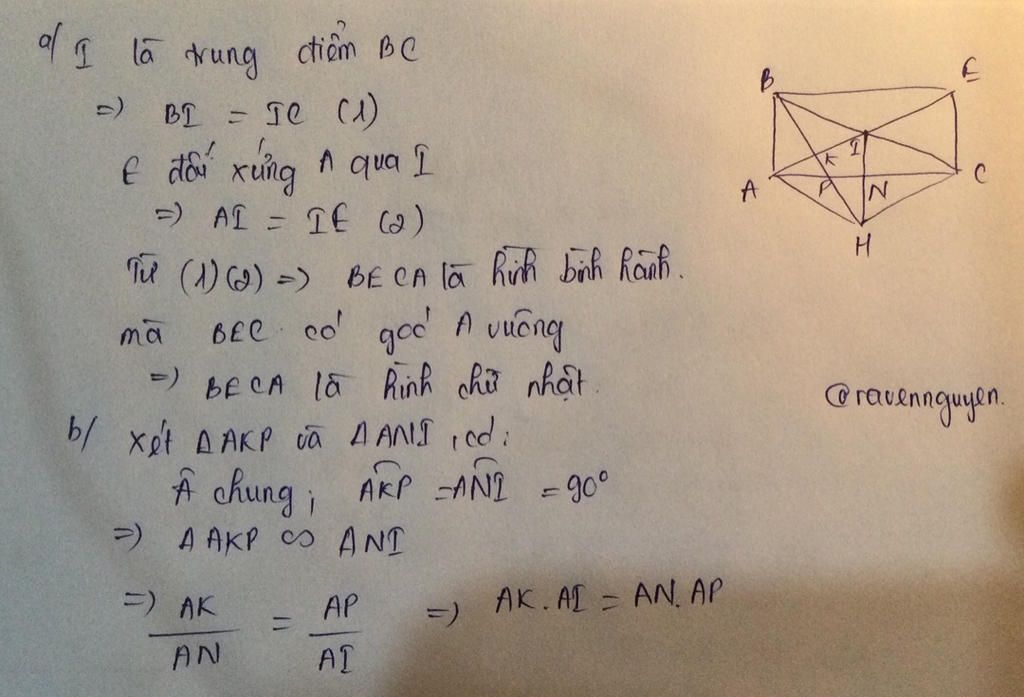 a/ I là trung điểm BC
=> BI = IC (1)
E đối xứng A qua I
=> AI = IE (2)
Từ (1)(2) => BECA là hình bình hành.
mà BEC có góc A vuông
=> BECA là hình chữ nhật.
b/ Xét ΔAKP và ΔANI, có:
Â chung; AKP = ANI = 90°
=> ΔAKP ∽ ANI
=> AK/AN = AP/AI => AK.AI = AN.AP
B E
I
K
A P N C
H
@ravennguyen.